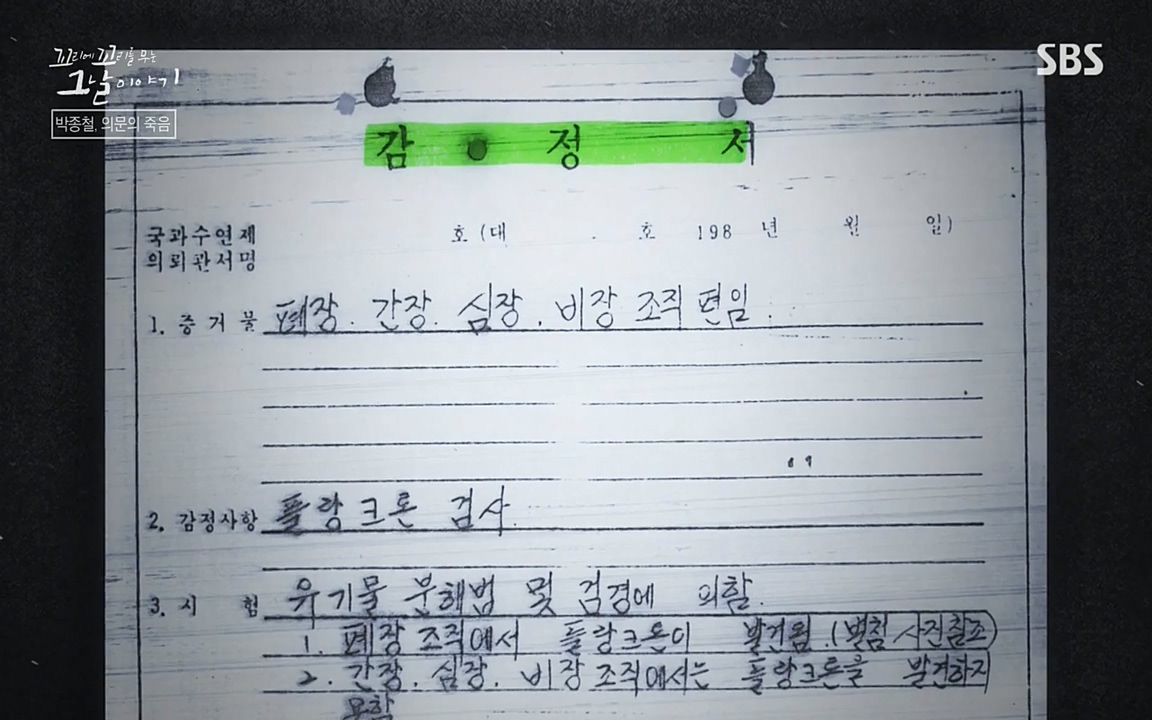 꼬리에 꼬리를 무는
그날 이야기
박종철, 의문의 죽음
SBS
감 정 서
국과수연제 호 (대 . 호 198 년 월 일)
의뢰관서명
1. 증거물 폐장. 간장. 심장. 비장 조직 편임.
2. 감정사항 플랑크톤 검사.
3. 시 험 유기물 분해법 및 검경에 의함.
1. 폐장 조직에서 플랑크톤이 발견됨. (별첨 사진참조)
2. 간장. 심장. 비장 조직에서는 플랑크톤을 발견하지
못함